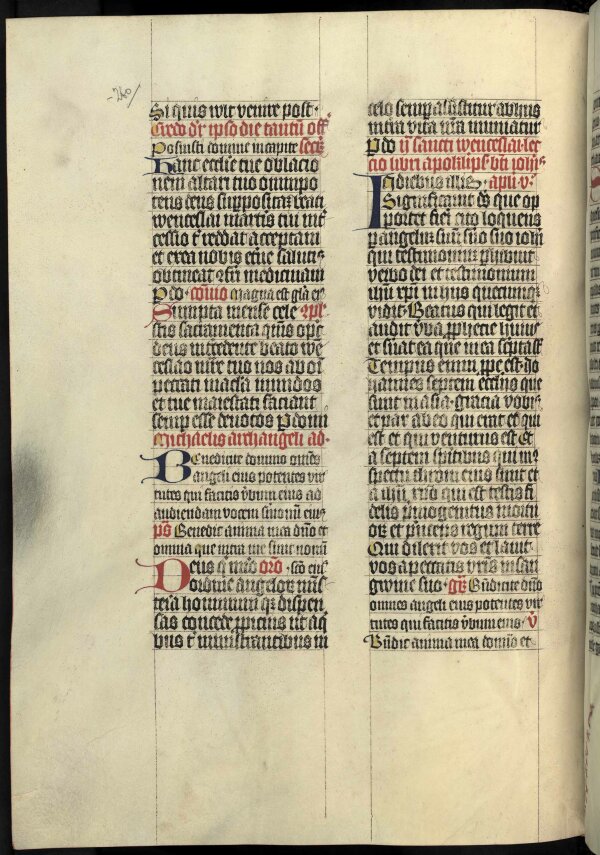 Si quis vult venire post
Credo dr ipso die tantu off
Posuisti domine in capite secr
Hanc ecclie tue oblacio
nem altari tuo omnipo
tens deus supposita beati
wenceslai martiris tui int
cessio t reddat acceptam
et ex ea nobis eterne salutis
obtineat
P do comio Magna est gla ei
Sumpta mense cele
stis sacramenta qms ope
deus intercedente beato we
ceslao mre tuo nos ab oi
peccati macula mundos
et tue maiestati faciant
semp esse devotos P domi
Michaelis archangeli ad
Benedicite domino omes
angeli eius potentes vir
tutes qui facitis vbum eius ad
audiendam vocem smonu eius
ps Benedic anima mea dno et
omnia que intra me sunt nomi
Deus q miro oro sco eni
Ordine angeloz mis
teria hominum qz dispen
sas concede ppicius ut a q
bus t ministrantibus in
celo semp assistitur ab hijs
in tra vita nra muniatur
P do sancti wenceslai lec
cio libri apokalips bti iohis
In diebus illis apli
Significavit ds que op
portet fieri cito loquens
p angelu suu suo suo iohi
qui testimoniu phibuit
verbo dei et testimonium
ihu xpi in hijs quecumqz
vidit Beatus qui legit et
audit vba pphecie huius
et suat ea que in ea scpta st
Tempus enim ppe est Jo
hannes septem ecclijs que
sunt in asia gracia vobis
et pax ab eo qui erat et qui
est et qui venturus est Et
a septem spitibus qui in
spectu throni eius sunt et
a ihu xpo qui est testis fi
delis primogenitus mortu
oz et princeps regum terre
Qui dilexit vos et lavit
vos a peccatis vris in san
gwine suo gr Bndicite dno
omnes angeli eius potentes vir
tutes qui facitis vbum eius v
Bndic anima mea domino et